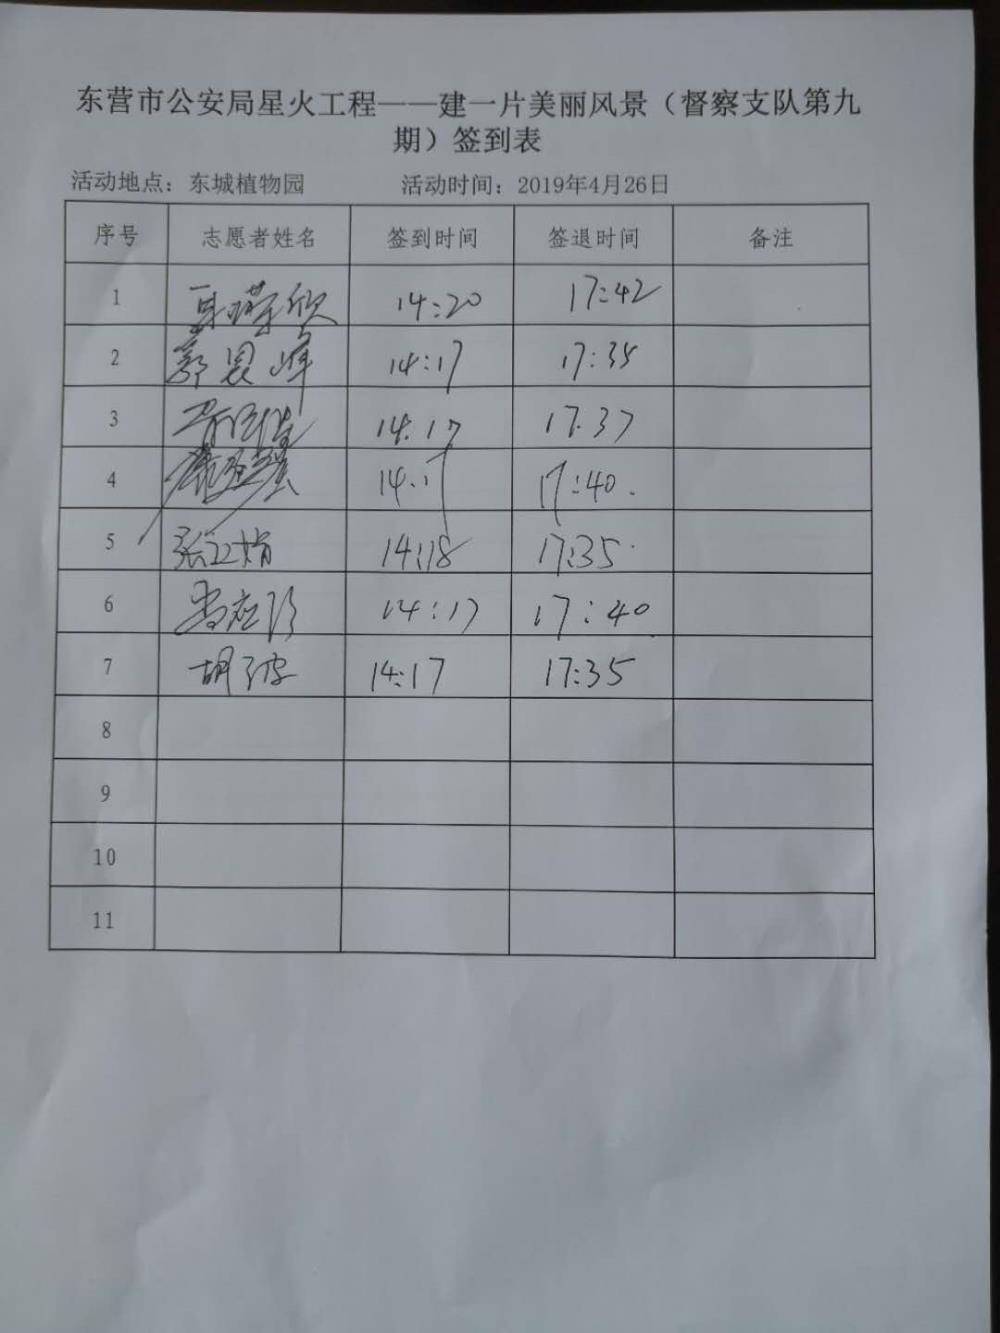 东营市公安局星火工程——建一片美丽风景（督察支队第九
期）签到表
活动地点：东城植物园 活动时间：2019年4月26日
序号 志愿者姓名 签到时间 签退时间 备注
1 14:20 17:42
2 14:17 17:35
3 14:17 17:37
4 14:17 17:40
5 14:18 17:35
6 14:17 17:40
7 胡 14:17 17:35
8
9
10
11